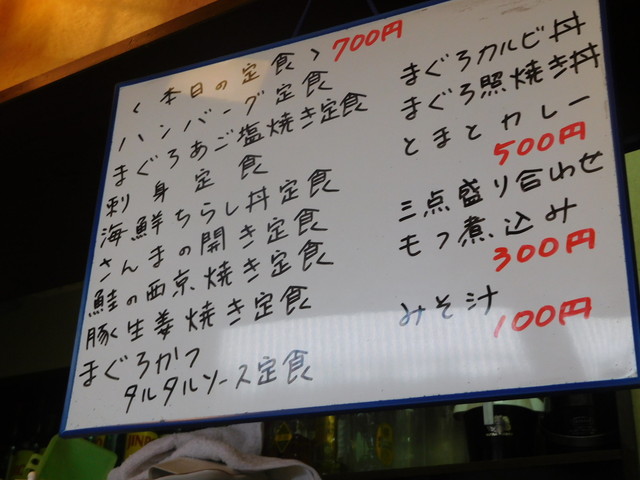 〈本日の定食〉700円
ハンバーグ定食
まぐろあご塩焼き定食
刺身定食
海鮮ちらし丼定食
さんまの開き定食
鮭の西京焼き定食
豚生姜焼き定食
まぐろかつ
タルタルソース定食
まぐろカルビ丼
まぐろ照焼き丼
とまとカレー
500円
三点盛り合わせ
もつ煮込み
300円
みそ汁
100円